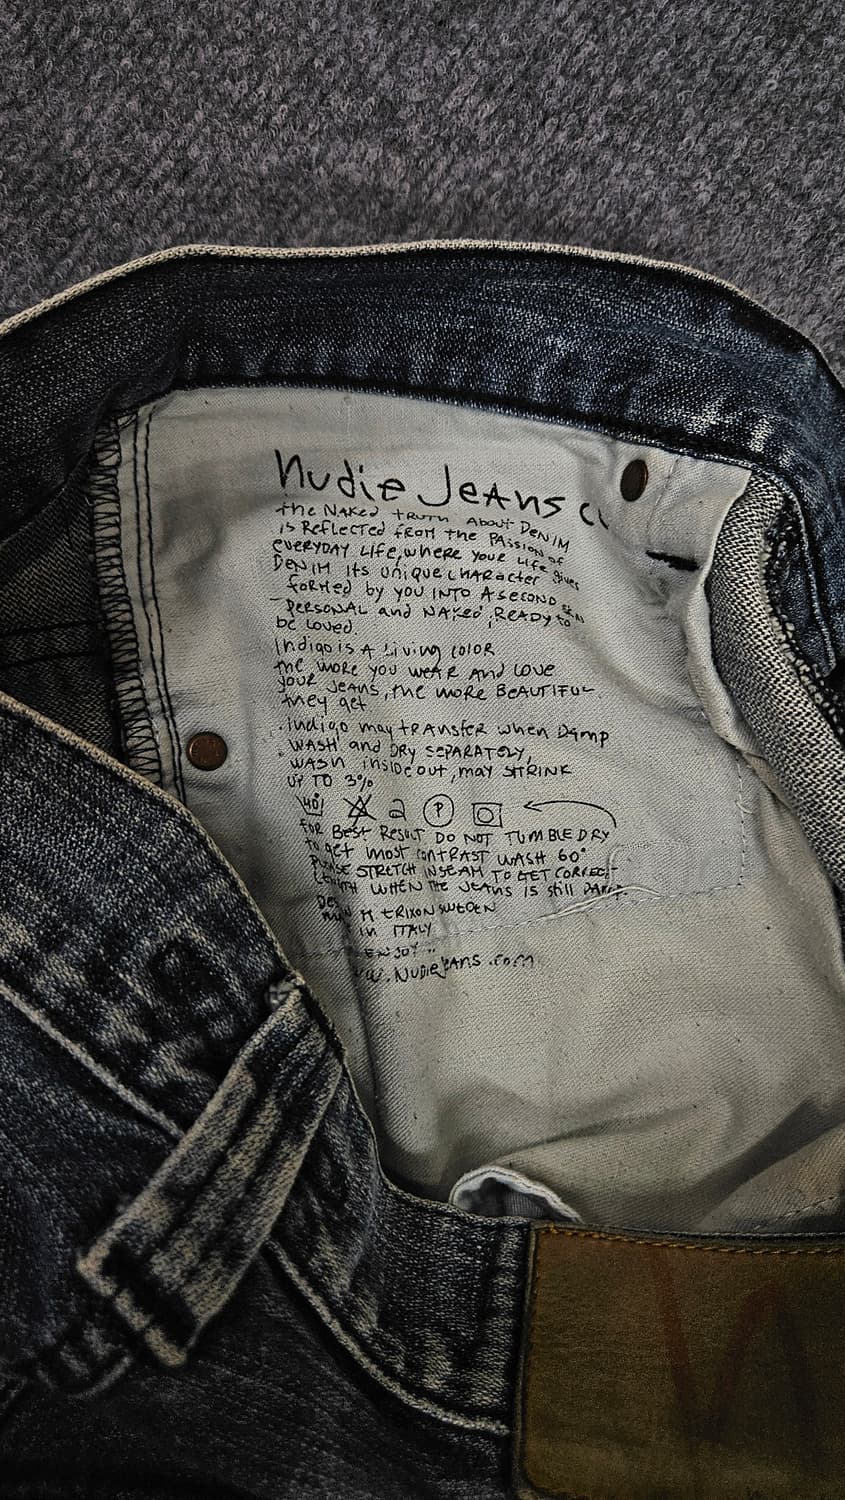 Nudie Jeans C
the NAKED TRUTH About DENIM
is Reflected from the PASSION of
EVERYDAY LIFE, where YOUR LIFE gives
DENIM its unique CHARACTER
formed by you INTO A SECOND SKIN
_PERSONAL and NAKED, READY to
be Loved.
Indigo is A Living COLOR
the more you WEAR And Love
your JEANS, the more BEAUTIFUL
they get
.Indigo may tRANSFER when DAmp
.WASH and DRY SEPARATELY,
.WASH inside out, may SHRINK
UP TO 3%
40° P
FOR BEST RESULT DO NOT TUMBLE DRY
to get most contRAST WASH 60°
PLEASE STRETCH INSEAM TO GET CORRECT
LENGTH WHEN THE JEANS is still DAMP.
M ERIXON SWEDEN
in ITALY
ENJOY
.NudieJeans.com